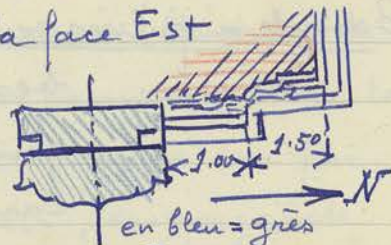 a face Est
1.00
1.50
N
en bleu = grès